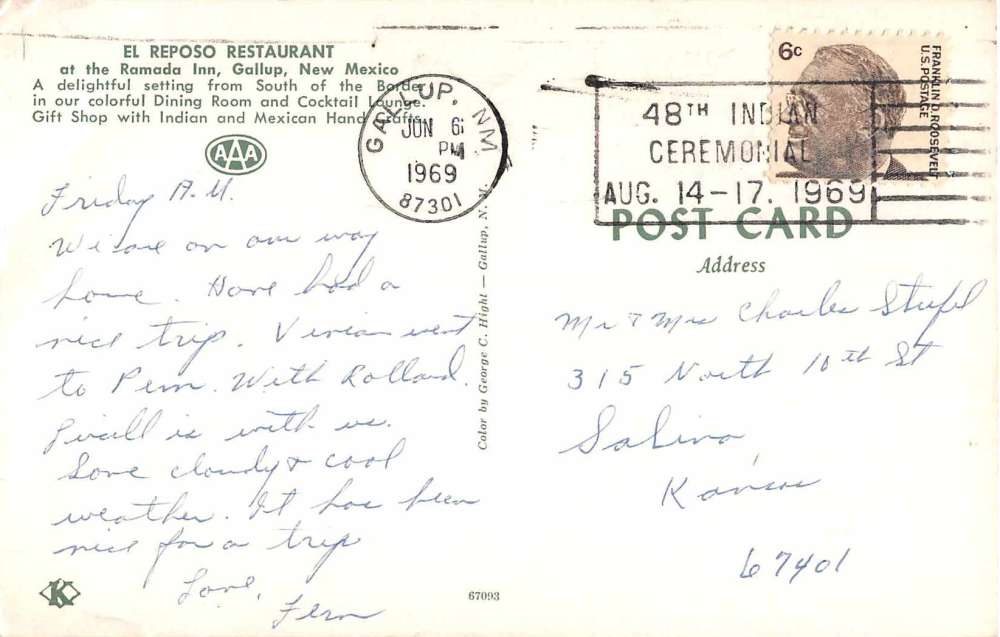 EL REPOSO RESTAURANT
at the Ramada Inn, Gallup, New Mexico
A delightful setting from South of the Border
in our colorful Dining Room and Cocktail Lounge.
Gift Shop with Indian and Mexican Hand Crafts.
AAA
Friday A.M.
We are on our way
home. Have had a
nice trip. Vivian went
to Penn. With Rolland.
is with us.
Some cloudy & cool
weather. It has been
nice for a trip
Love,
Fern
K
67093
Color by George C. Hight — Gallup, N. M.
GALLUP, NM
JUN 6
PM
1969
87301
48TH INDIAN
CEREMONIAL
AUG. 14-17. 1969
6c
FRANKLIN D. ROOSEVELT
U.S. POSTAGE
POST CARD
Address
Mr & Mrs Charles
315 North 10th St
Salina,
Kansas
67401